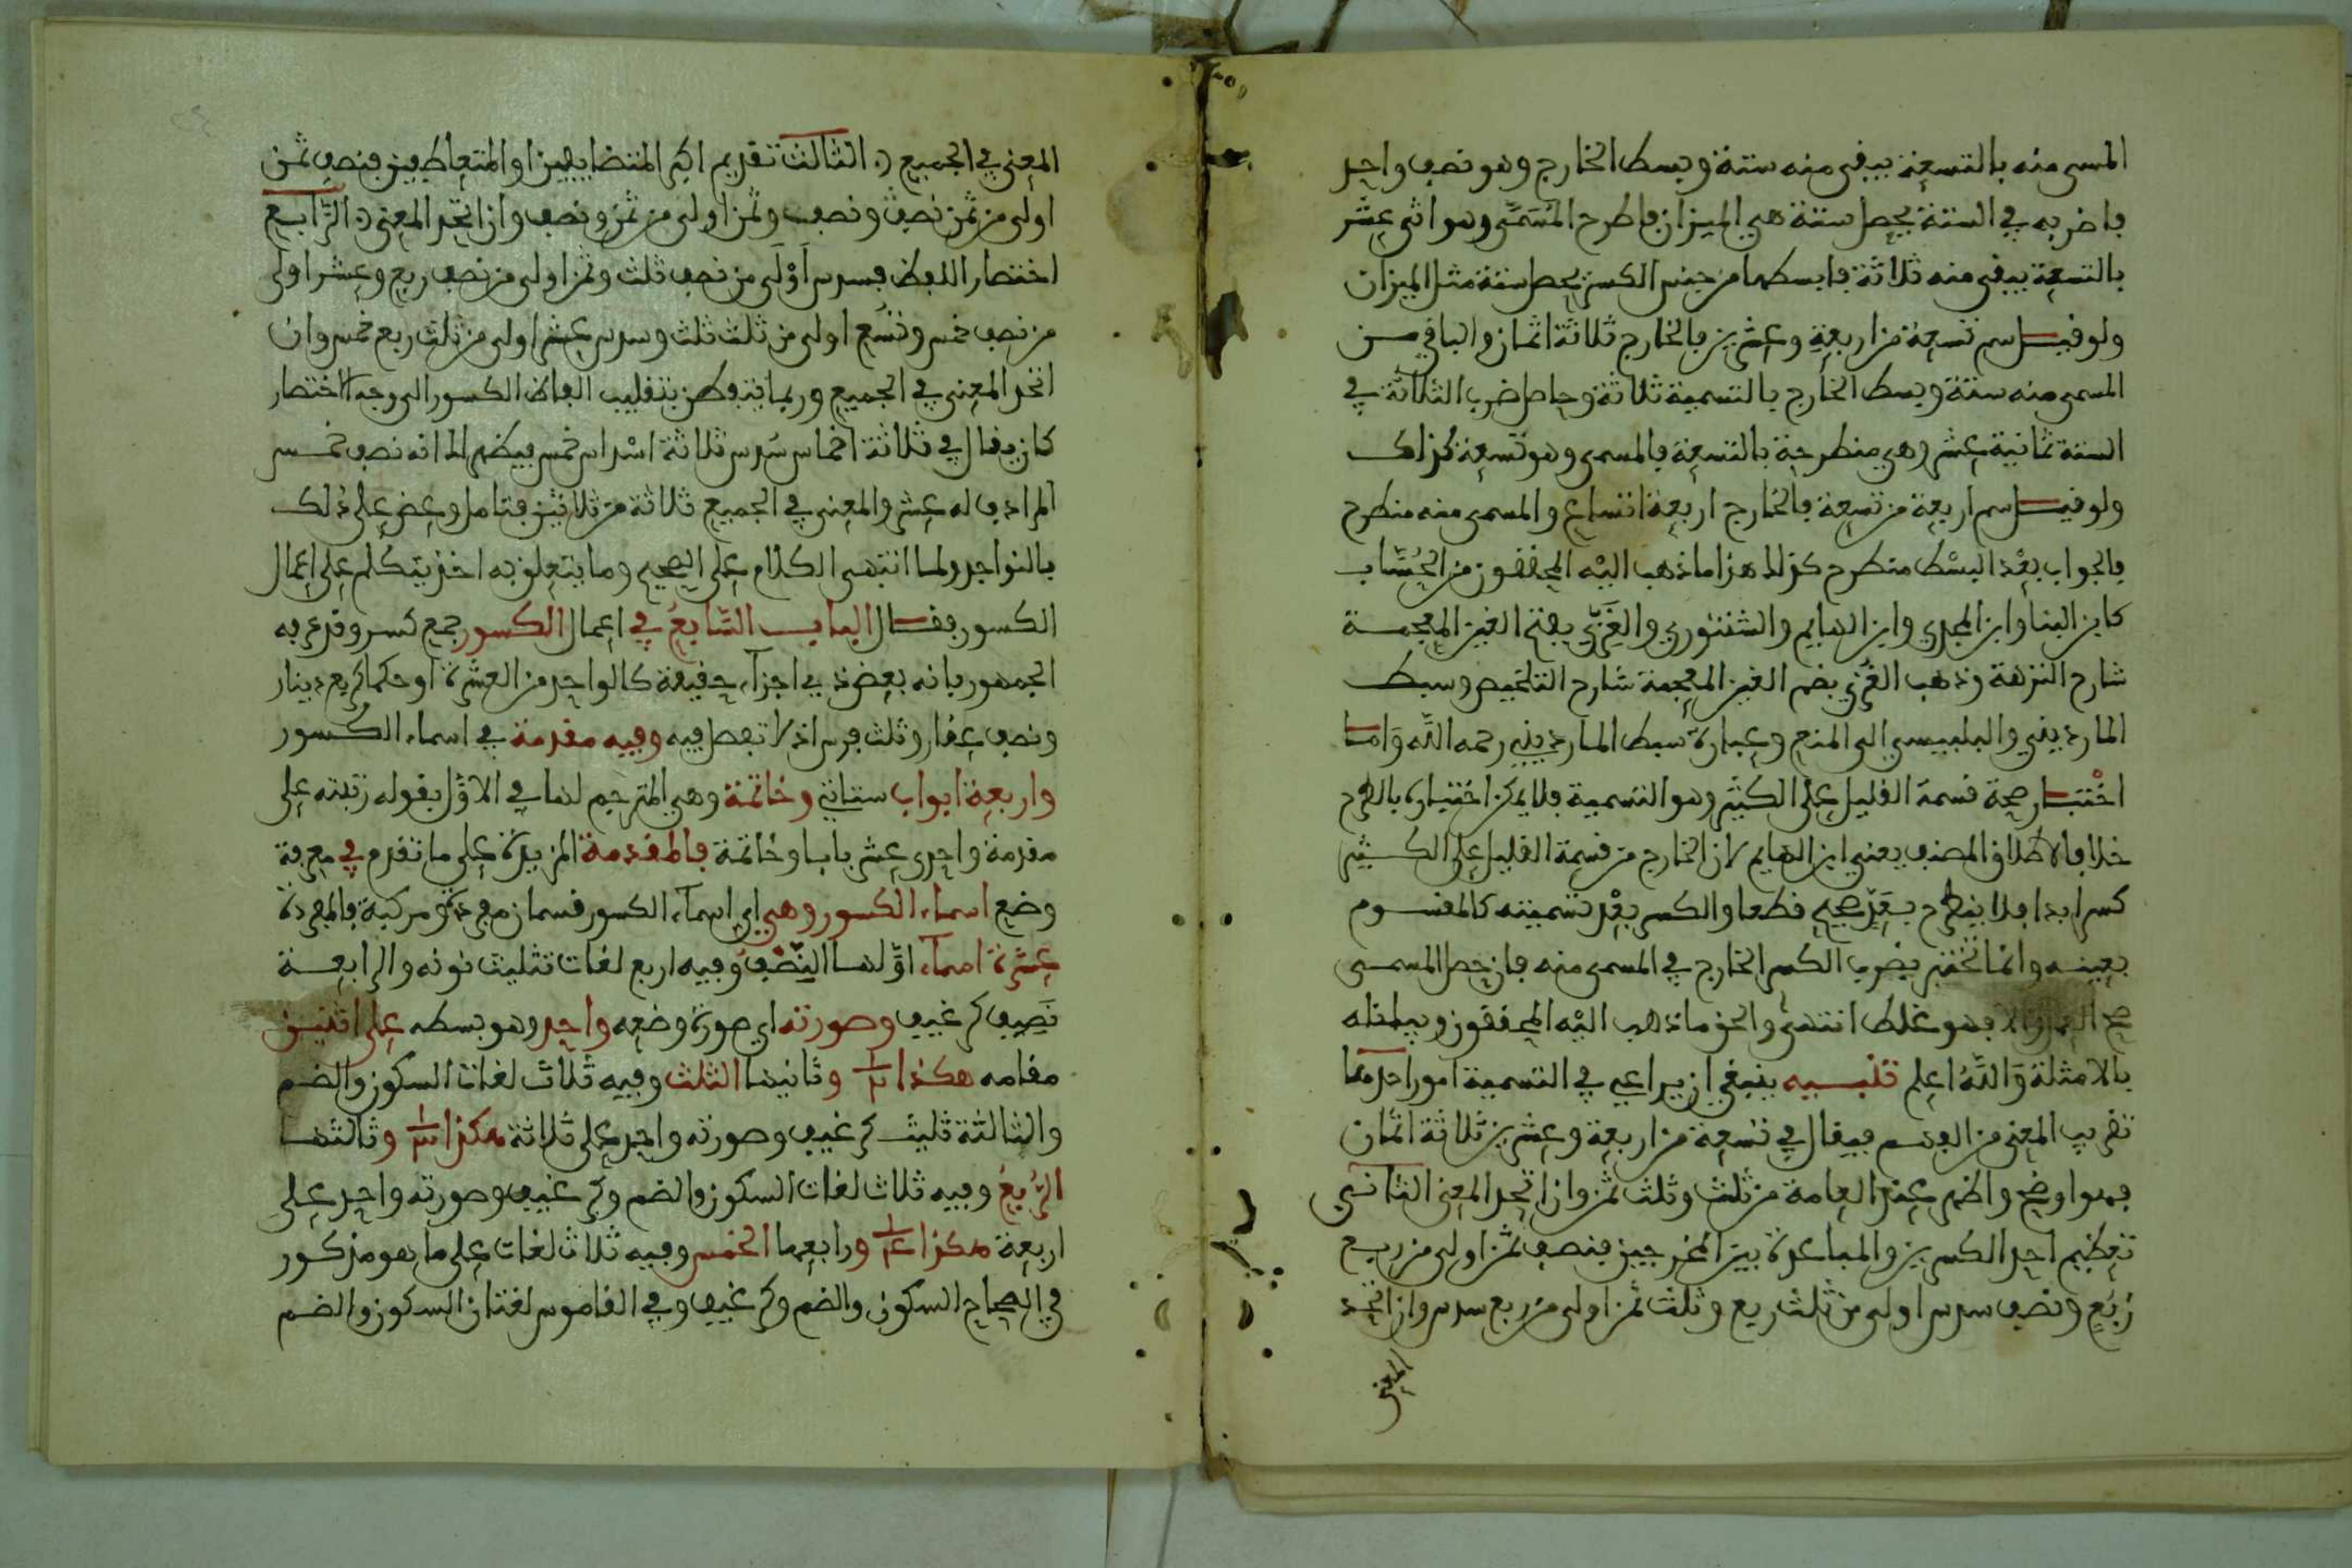 المسمى منه بالتسعة يبقى منه ستة وبسط الخارج وهو نصف واحد
فاضربه في الستة يحصل ستة هي الميزان فاطرح المُسَمَّى وهو اثنى عشر
بالتسعة يبقى منه ثلاثة فابسطها من جنس الكسر يحصل ستة مثل الميزان
ولو قيل سم تسعة من اربعة وعشرين فالخارج ثلاثة اثمان والباقي من
المسمى منه ستة وبسط الخارج بالتسمية ثلاثة وحاصل ضرب الثلاثة في
الستة ثمانية عشر وهي منطرحة بالتسعة فالمسمى وهو تسعة كذلك
ولو قيل سم اربعة من تسعة فالخارج اربعة اتساع والمسمى منه منطرح
فالجواب بعد البسْط منطرح كذلك هذا ما ذهب اليْه المحققون من الحُسَّاب
كابن البنا وابن المجدي وابن الهايم والشنشوري والغَزّي بفتح الغين المعجمة
شارح النزهة وذهب الغُزّي بضم الغين المعجمة شارح التلخيص وسبط
المارديني والبلبيسي الى المنع وعبارة سبط المارديني رحمه اللَّه وَاما
اخْتبار صحة قسمة القليل على الكثير وهو التسمية فلا يمكن اختباره بالطرح
خلافا لاطلاق المصنف يعني ابن الهايم لان الخارج من قسمة القليل على الكثير
كسر ابدا فلا ينطرح بعَدَد صحيح قطعا والكسر بعْد تسميته كالمقسوم
بعينه وانما تختبر بضرب الكسر الخارج في المسمى منه فان حصل المسمى
صح العمل والا فهو غلط انتهى والحق ما ذهب اليْه المحققون وبيانه
بالامثلة وَاللَّهُ اعلم تنبيه ينبغي ان يراعى في التسمية امور احدها
تقريب المعنى من الفهم فيقال في تسعة من اربعة وعشرين ثلاثة اثمان
فهو اوضح واظهر عند العامة من ثلث وثلث ثمن وان اتحد المعنى الثاني
تعظيم احد الكسرين والمباعدة بين المخرجين فنصف ثمن اولى من ربع
رُبَعٍ ونصف سدس اولى من ثلث ربع وثلث ثمن اولى من ربع سدس وان اتحد
المعنى
المعنى في الجميع الثالث تقديم اكبر المتضايفين او المتعاطفين فنصف ثمن
اولى من ثمن نصف ونصف وثمن اولى من ثمن ونصف وان اتحد المعنى الرَّابع
اختصار اللفظ فسدس أوْلَى من نصف ثلث وثمن اولى من نصف ربع وعشر اولى
من نصف خمس وتسع اولى من ثلث ثلث وسدس عشر اولى من ثلث ربع خمس وان
اتحد المعنى في الجميع وربما يتفطن بتقليب الفاظ الكسور الى وجه الاختصار
كان يقال في ثلاثة اخماس سُدس ثلاثة اسْداس خمس فيظهر لك انه نصف خمس
المرادف له عشر والمعنى في الجميع ثلاثة من ثلاثين فتامل وعض على ذلك
بالنواجد ولما انتهى الكلام على الصحيح وما يتعلق به اخذ يتكلم على اعمال
الكسور فقال الباب السَّابعُ في اعمال الكسور جمع كسر وقد عرفه
الجمهور بانه بعض ذي اجزاء حقيقة كالواحد من العشرة او حكما كربع دينار
ونصف عقار وثلث فرس اذ لا تفصل فيه وفيه مقدمة في اسماء الكسور
واربعة ابواب ستاتي وخاتمة وهي المترجم لها في الاوّل بقوله رتبته على
مقدمة واحدى عشر بابا وخاتمة فالمقدمة المزيدة على ما تقدم في معرفة
وضع اسماء الكسور وهي اي اسماء الكسور قسمان مفردة ومركبة فالمفردة
عشرة اسماء اوّلها النِّصْفُ وفيه اربع لغات تثليث نونه والرابعة
نَصِيف كرغيف وصورته اي صورة وضعه واحد وهو بسطه على اثنين
مقامه هكذا ١/٢ وثانيها الثلث وفيه ثلاث لغات السكون والضم
والثالثة ثليث كرغيف وصورته واحد على ثلاثة هكذا ١/٣ وثالثها
الرُّبعُ وفيه ثلاث لغات السكون والضم وكرغيف وصورته واحد على
اربعة هكذا ١/٤ ورابعها الخمس وفيه ثلاث لغات على ما هو مذكور
في الصحاح السكون والضم وكرغيف وفي القاموس لغتان السكون والضم